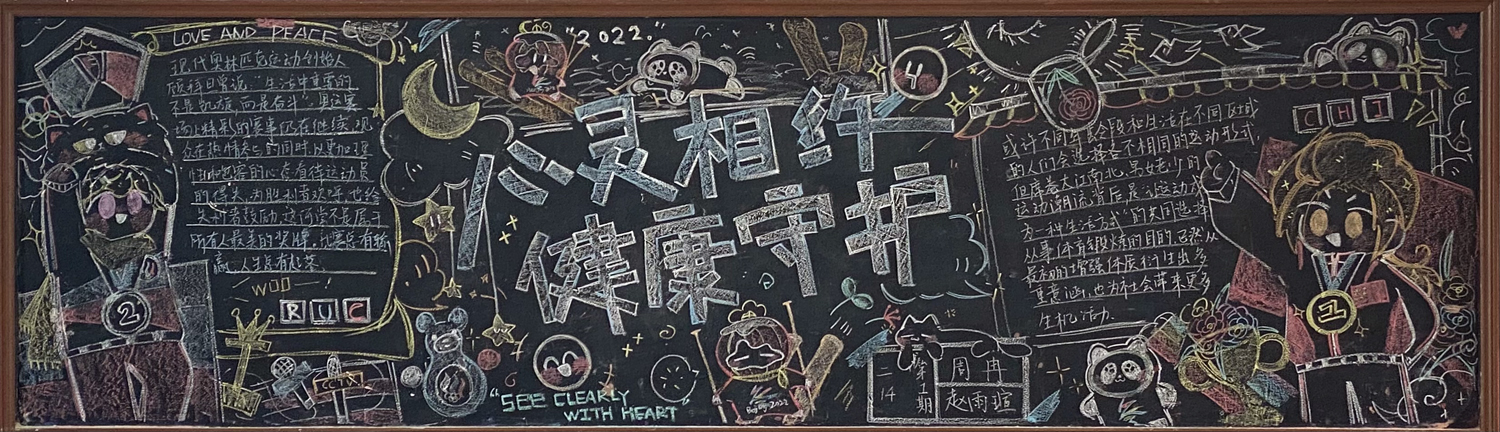 LOVE AND PEACE
现代奥林匹克运动创始人
顾拜旦曾说，“生活中重要的
不是凯旋，而是奋斗”奥运赛
场上精彩的赛事仍在继续，观
众在热情参与的同时，以更加理
性和包容的心态看待运动员
的得失，为胜利者欢呼，也给
失利者鼓励，这何尝不是属于
所有人最美的奖牌。比赛总有输
赢，人生总有起落
WOO
RUC
2022.
4
心灵相约
健康守护
"SEE CLEARLY
WITH HEART"
Beijing 2022
CCTV
二14
第 期
周冉
赵雨瑄
CHI
或许不同年龄段和生活在不同区域
的人们会选择各不相同的运动形式
但席卷大江南北、男女老少的
运动潮流背后，是以运动成
为一种生活方式”的共同选择
从事体育锻炼的目的，已然从
最初的增强体质衍生出多
重意涵，也为社会带来更多
生机活力.
2